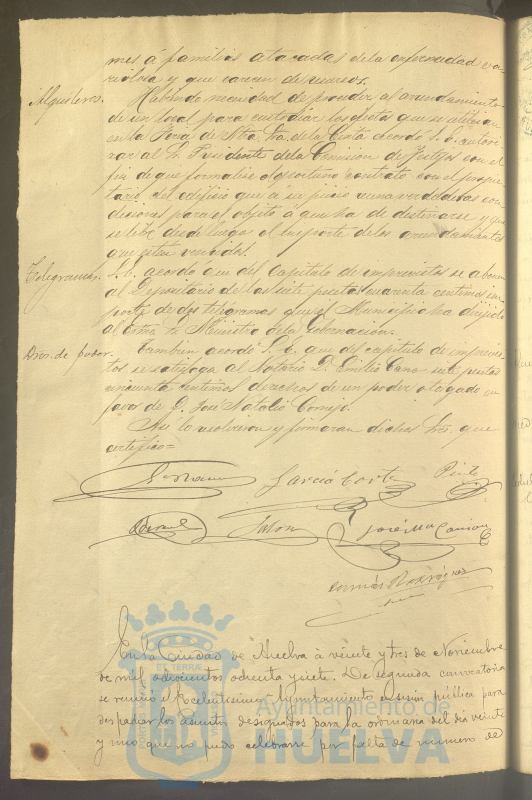 mes á familias atacadas de la enfermedad va-
riolosa y que carecen de recursos.
Alquileres. Habiendo necesidad de proceder al arrendamiento
de un local para custodiar los efectos que se utilizan
en la Feria de Ntra. Sra. de la Cinta acordó S. E. autori-
zar al Sr. Presidente de la Comision de Festejos con el
fin de que formalice el oportuno contrato con el propie-
tario del edificio que á su juicio reuna verdaderas con-
diciones para el objeto á que ha de destinarse y que
se libre desde luego el importe de los arrendamientos
que estan vencidos.
Telegramas. S. E. acordó que del capitulo de imprevistos se abonen
al Depositario de los siete pesetas cuarenta centimos im-
porte de dos telégramas que el Municipio ha dirigido
al Excmo. Sr. Ministro de la Gobernacion.
Dros. de poder. Tambien acordó S. E. que del capitulo de imprevis-
tos se satisfaga al Notario D. Emilio Cano siete pesetas
cincuenta centimos derechos de un poder otorgado en
favor de D. José Natalio Cornejo.
Asi lo resolvieron y firmaran dichos Sres. que
certifico=
García Cortes Pinto
José Ma
Rodríguez
En la Ciudad de Huelva á veinte y tres de Noviembre
de mil ochocientos ochenta y siete. De segunda convocatoria
se reunió el Excelentisimo Ayuntamiento en sesión pública para
despachar los asuntos designados para la ordinaria del dia veinte
y uno que no pudo celebrarse por falta de numero de
Ayuntamiento de
HUELVA